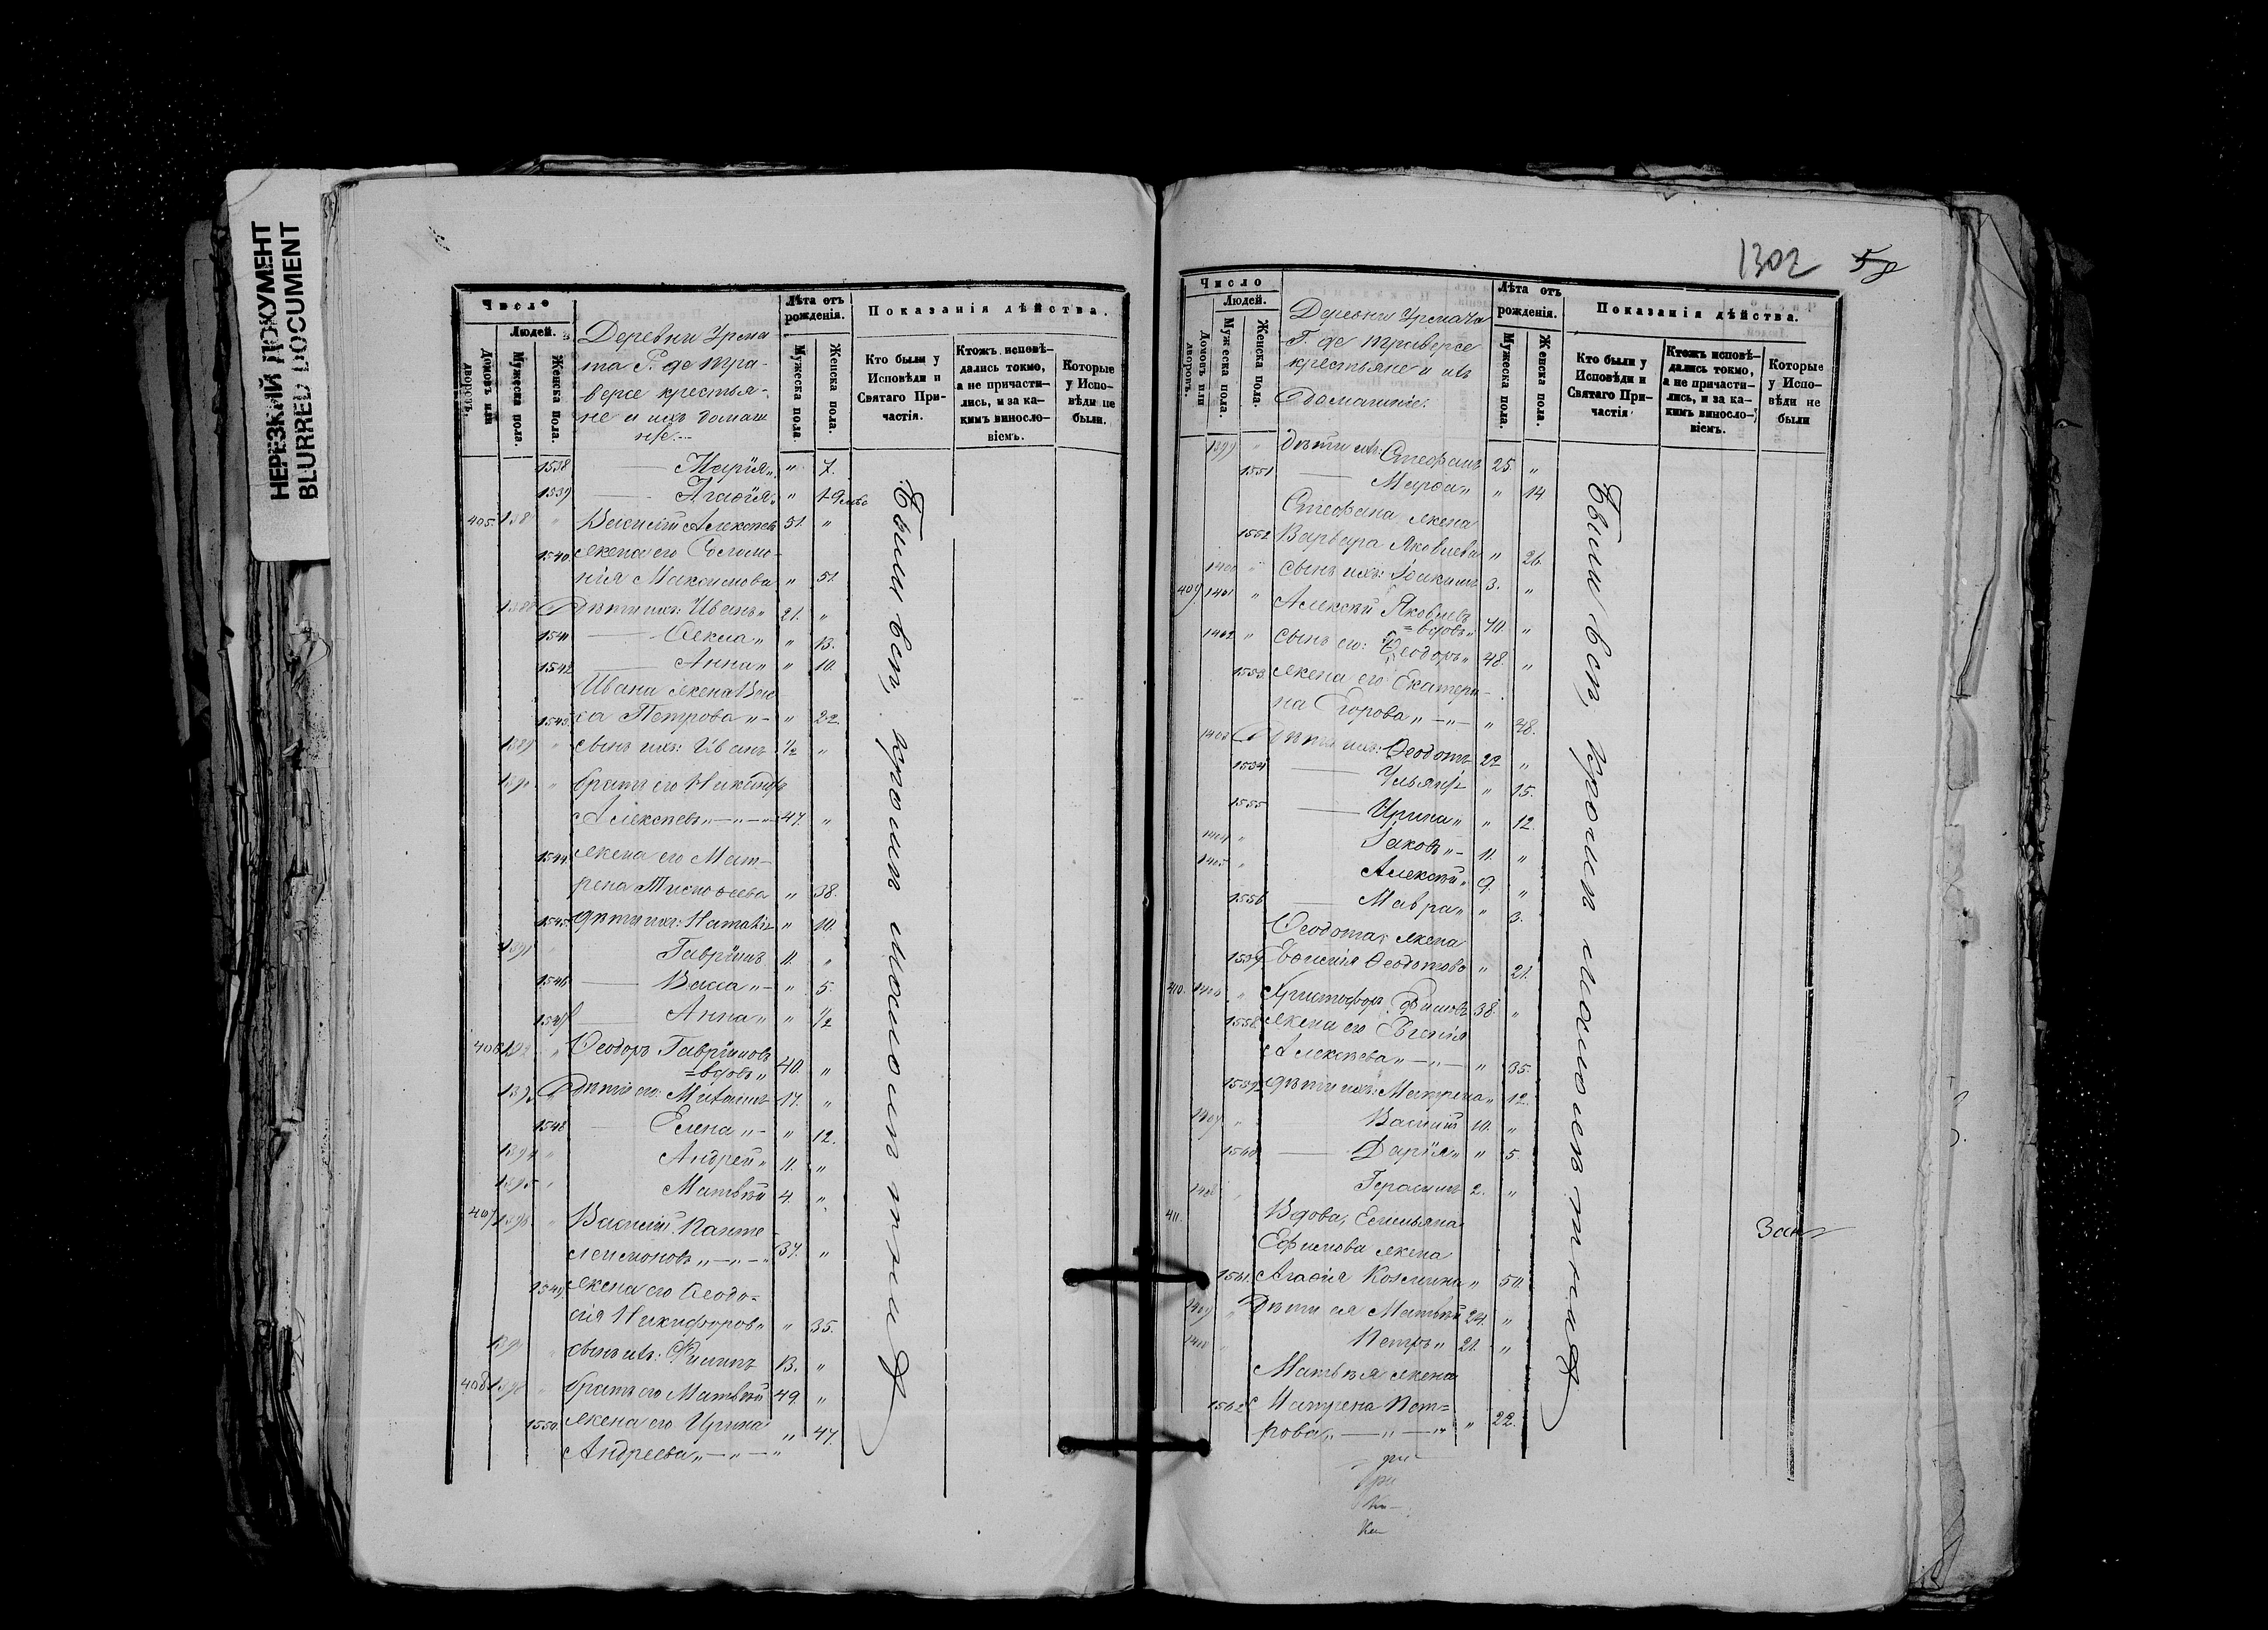 НЕРЕЗКИЙ ДОКУМЕНТ
BLURRED DOCUMENT
Число
Людей.
Домовъ или дворовъ.
Мужеска пола.
Женска пола.
Деревни Урма-
та Г. де Тра-
версе крестья-
не и ихъ домаш
ніе.
Лѣта отъ рожденія.
Мужеска пола.
Женска пола.
Показанія дѣйства.
Кто были у Исповѣди и Святаго Причастія.
Ктожъ исповѣ-дались токмо, а не причасти-лись, и за ка-кимъ винословіемъ.
Которые у Испо-вѣди не были.
1538 Марія " 7.
1539 Агафія " 1
405. 138 " Василій Алексѣевъ 51. "
1540 Жена его
нія Максимова " 51.
1388 Дѣти ихъ: Иванъ 21. "
1541 Ѳекла " " 13.
1542 Анна " " 10.
Ивана жена Вас-
1543 са Петрова " 22.
1389 " сынъ ихъ: Иванъ 1/2 "
1390 " братъ его Никандръ
Алексѣевъ 47. "
1544 жена его Мат-
рена Тимоѳеева " 38.
1545 дѣти ихъ: Наталія " 10.
1391 " Гавріилъ 11. "
1546 Васса " " 5.
1547 Анна " " 1/2
406 1392 " Ѳеодоръ Гавріиловъ
=вдовъ " 40. "
1393 " Дѣти его: Михаилъ 17. "
1548 Елена " " 12.
1394 " Андрей " 11. "
1395 " Матвѣй 4. "
407 1396 " Василій Панте
леимоновъ 37. "
1549 Жена его Ѳеодо=
сія Никифоров " 35.
1397 " сынъ ихъ: Филипъ 13. "
408 1398 " братъ его Матвѣй 49. "
1550 жена его Ирина
Андреева " 47.
Были всѣ, кромѣ малолѣтнихъ
1302
Число
Людей.
Домовъ или дворовъ.
Мужеска пола.
Женска пола.
Деревни Урмата
Г. де Траверсе
крестьяне и ихъ
домашніе.
Лѣта отъ рожденія.
Мужеска пола.
Женска пола.
Показанія дѣйства.
Кто были у Исповѣди и Святаго При-частія.
Ктожъ исповѣ-дались токмо, а не причасти-лись, и за ка-кимъ винословіемъ.
Которые у Испо-вѣди не были
1399 " дѣти ихъ: Стефанъ 25. "
1551 Марѳа " " 14
Стефана жена
1552 Варвара Яковлева " 26.
1400 " сынъ ихъ: Іоакимъ 3. "
409 1401 " Алексѣй Яковлевъ
=вдовъ " 70. "
1402 " сынъ его: Ѳеодоръ " 48. "
1553 жена его Екатери-
на Егорова " 48.
1403 Дѣти ихъ: Ѳеодотъ 22 "
1554 Ульяна " 15.
1555 Ирина " " 12.
1404 " Іаковъ " 11. "
1405 " Алексѣй " 9. "
1556 Мавра " " 3.
Ѳеодота жена
1557 Евѳимія Ѳеодотова " 21.
410. 1406 " Христофоръ Филиповъ 38. "
1558 жена его Евгенія
Алексѣева " 35.
1559 дѣти ихъ: Матрена " 12.
1407 " Василій 10. "
1560 Дарія " " 5.
1408 " Герасимъ 2. "
411. Вдова, Емельяна
Ефимова жена
1561. Агафія Козмина " 50.
1409 " Дѣти ея Матвѣй 24. "
1410 " Петръ " 21. "
Матвѣя жена
1562 Матрена Пет=
рова " 22.
Были всѣ, кромѣ малолѣтнихъ